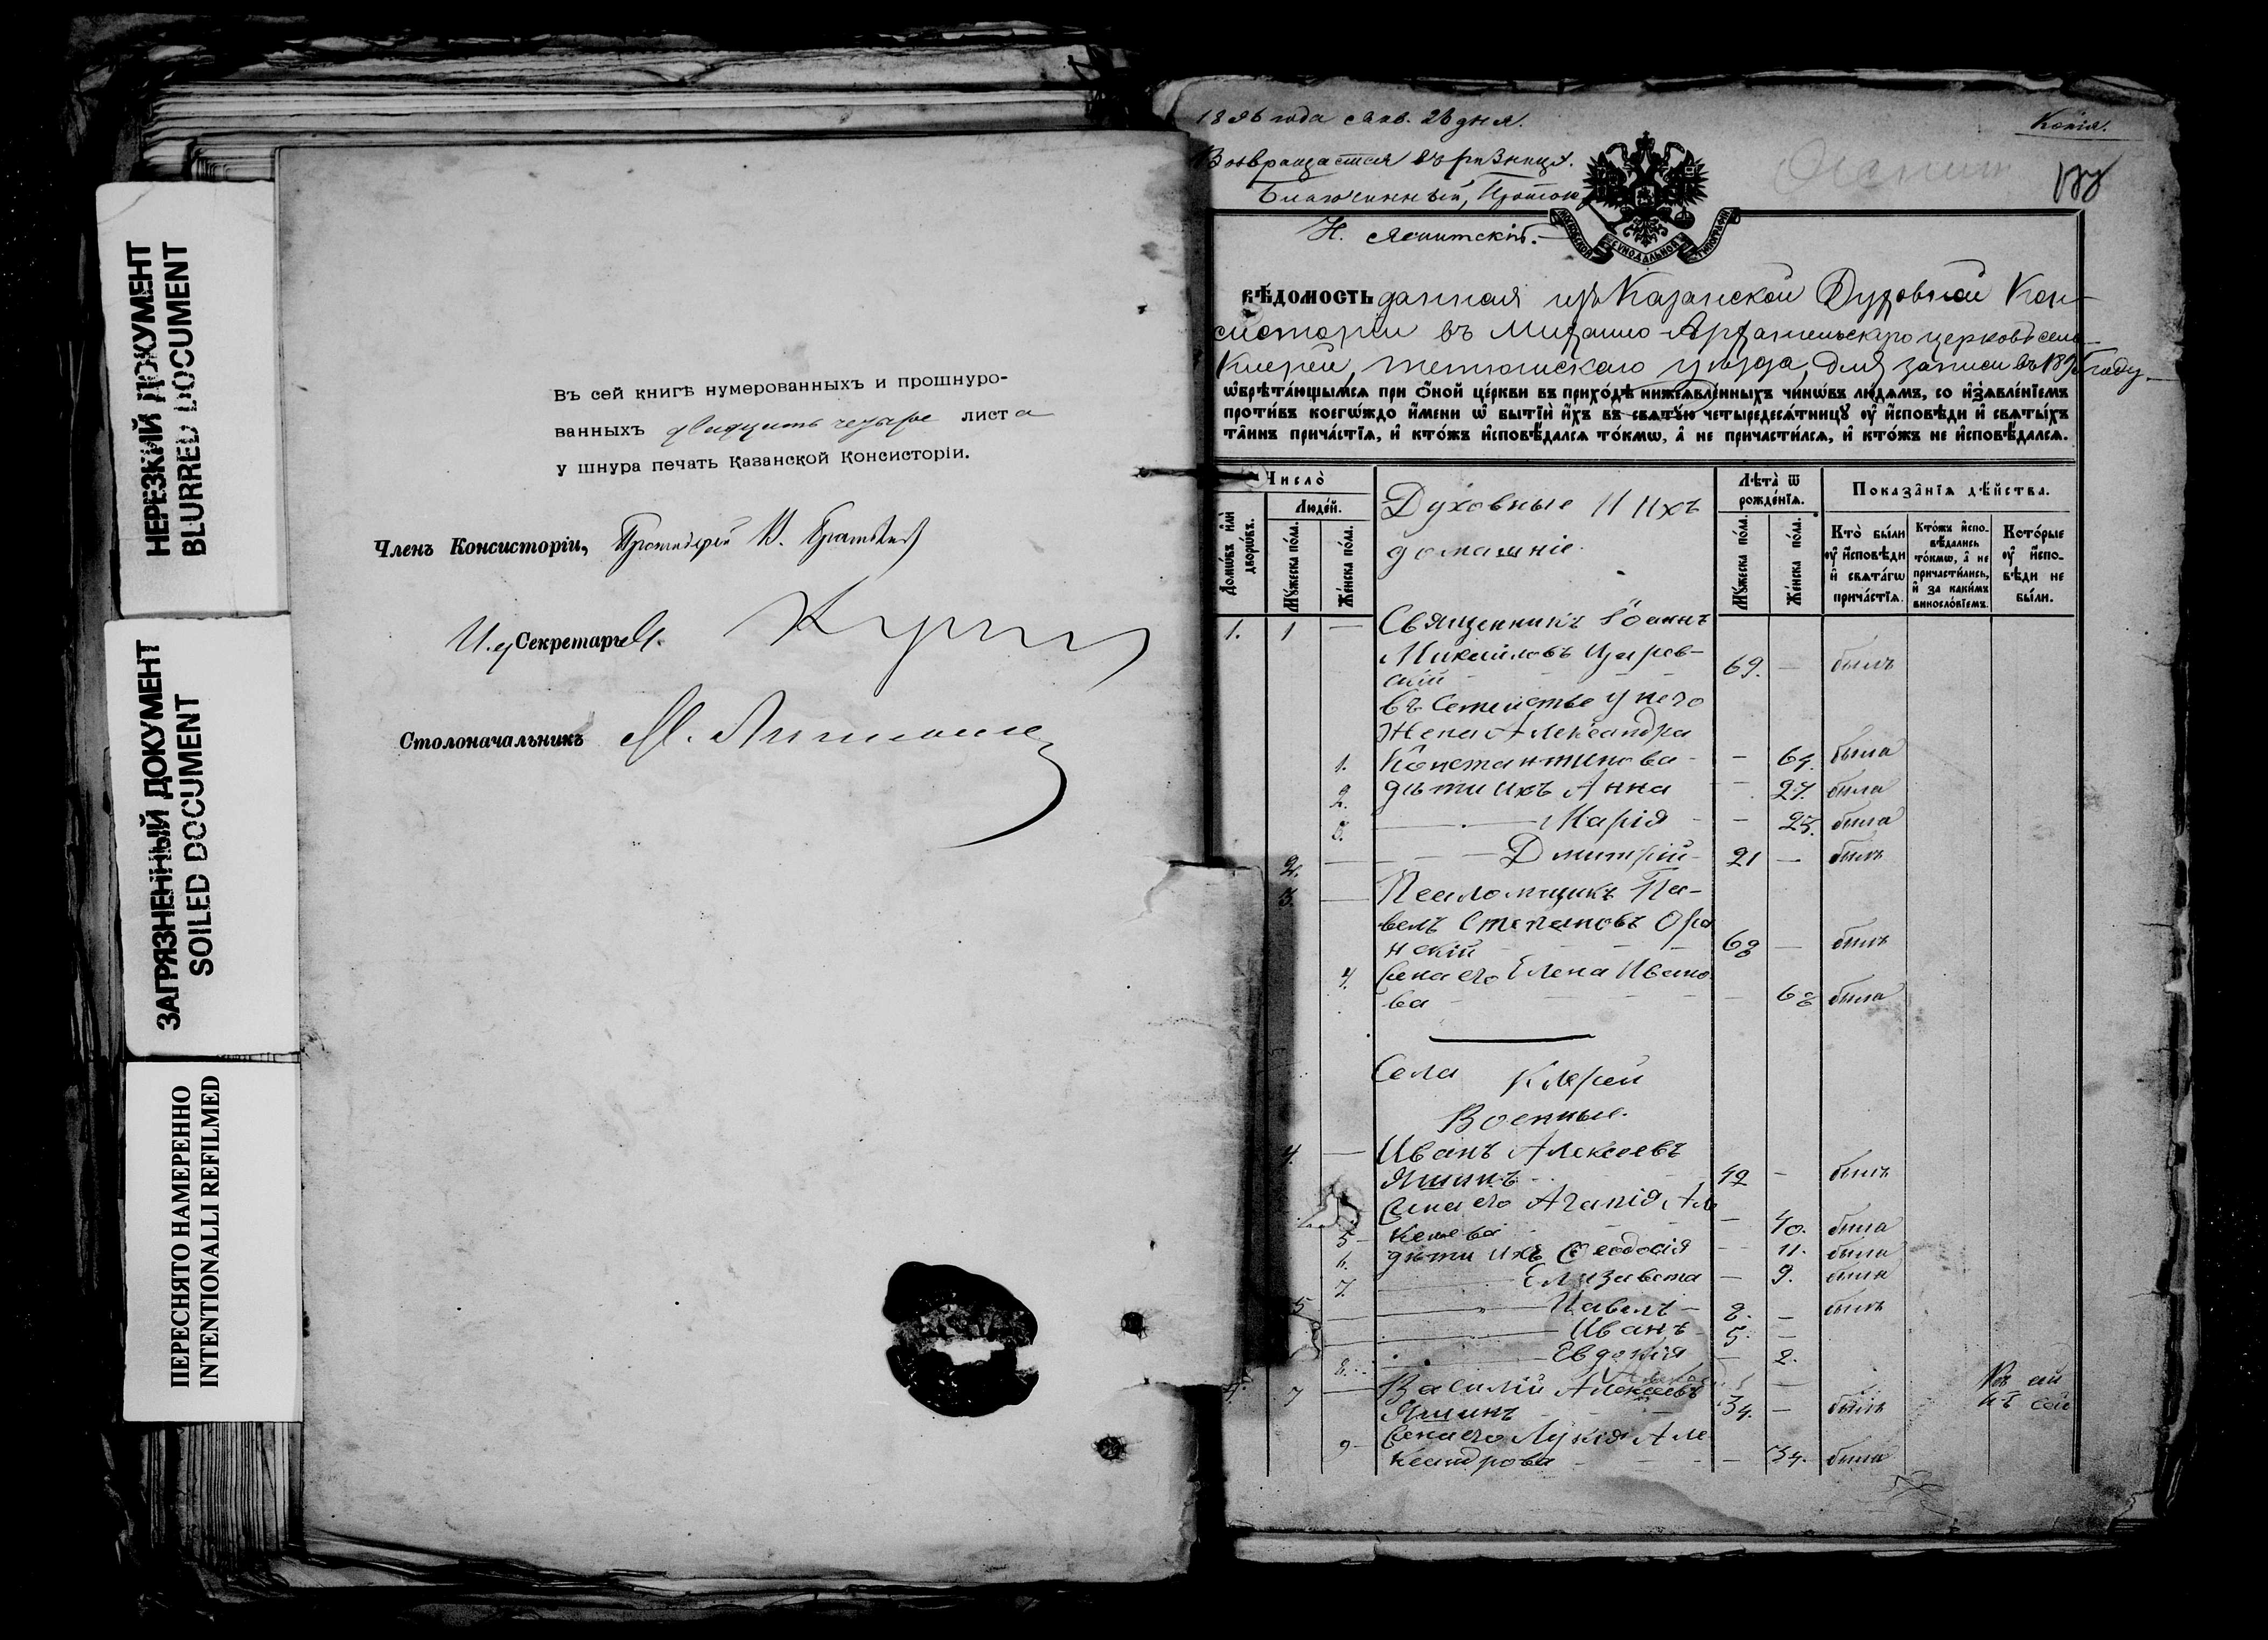 НЕРЕЗКИЙ ДОКУМЕНТ
BLURRED DOCUMENT
ЗАГРЯЗНЕННЫЙ ДОКУМЕНТ
SOILED DOCUMENT
ПЕРЕСНЯТО НАМЕРЕННО
INTENTIONALLI REFILMED
Въ сей книгѣ нумерованныхъ и прошнуро-
ванныхъ двадцать четыре листа
у шнура печать Казанской Консисторіи.
Членъ Консисторіи, Протоіерей В.
И. д. Секретаря
Столоначальникъ
1896 года 26 дня.
Возвращается въ ризницу.
Благочинный,
Н.
Копія.
СѴНОДАЛЬНОЙ ТИПОГРАФІИ
вѣдомость данная изъ Казанской Духовной Кон-
систоріи въ Михаило-Архангельскую церковь села
Клерей, Тетюшскаго уѣзда, для записи въ году
ѡ҆брѣта́ющымсѧ при о҆́ной це́ркви въ прихо́дѣ нижеꙗвле́нныхъ чинѡ́въ лю́демъ, со и҆з̾ѧвле́нїемъ
проти́въ коегѡ́ждо и҆́мени ѡ҆ бытїѝ и҆́хъ въ свѧтꙋ́ю четыредесѧ́тницꙋ ᲂу҆ и҆́сповѣди и҆ свѧты́хъ
та̑инъ прича́стїѧ, и҆ кто́жъ и҆сповѣ́далсѧ то́кмѡ, а҆ не причасти́лсѧ, и҆ кто́жъ не и҆сповѣ́далсѧ.
Число̀
Домѡ́въ и҆лѝ дворѡ́въ.
Люде́й.
Мꙋ́жеска по́ла.
Же́нска по́ла.
Духовные и ихъ
домашніе.
Лѣ́та ѿ рожде́нїѧ.
Мꙋ́жеска по́ла.
Же́нска по́ла.
Показа̑нїѧ дѣ́йства.
Кто̀ бы́ли ᲂу҆ и҆́сповѣди и҆ свѧта́гѡ прича́стїѧ.
Кто́жъ и҆сповѣ́дались то́кмѡ, а҆ не причасти́лись, и҆ за каки́мъ виносло́вїемъ.
Кото́рые ᲂу҆ и҆́сповѣди не бы́ли.
1. 1 — Священникъ Іоаннъ
Михаиловъ Царев-
скій 69. — былъ
въ семействѣ у него
Жена Александра
1. Константинова — 64. была
2. дѣти ихъ Анна — 27. была
3. Марія — 25. была
2. — Дмитрій 21 — былъ
3. — Псаломщикъ Па-
велъ Степановъ Ора
нскій 68 — былъ
4. Жена его Елена Ивано
ва — 68 была
Села Клерей
Военные.
4. — Иванъ Алексеевъ
Яшинъ 42 — былъ
Жена его Агапія Ал
5 ксеева — 40. была
6. дѣти ихъ Ѳеодосія — 11. была
7. Елизавета — 9. была
5 — Павелъ 8. — былъ
— Иванъ 5. —
8. Евдокія — 2.
7 — Василій Алексеевъ
Яшинъ 34. — былъ
Жена его Лукія Але
9 ксандрова — 34. была